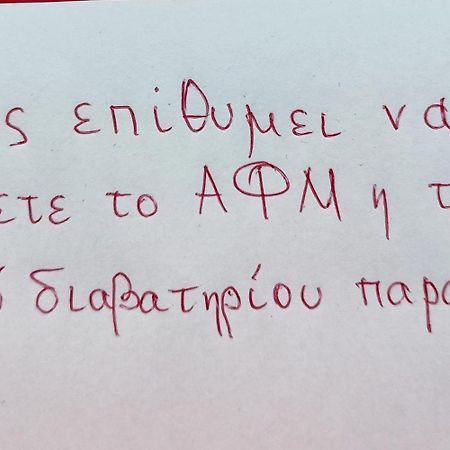 ς επιθυμει να
ετε το ΑΦΜ η τ
διαβατηρίου παρα